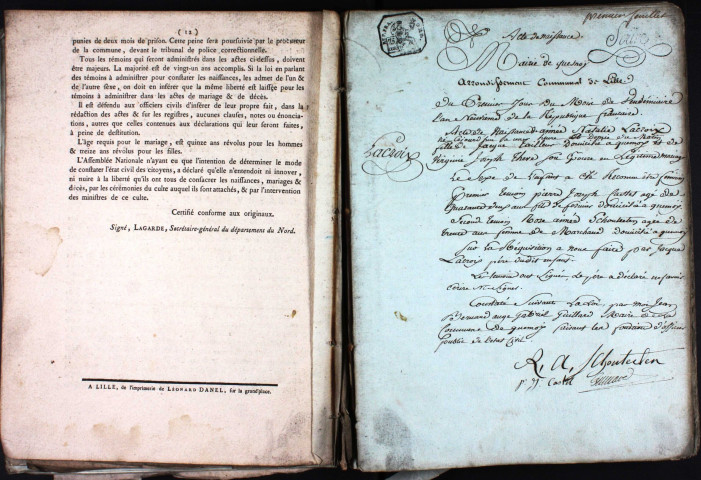 ( 12 )
punies de deux mois de prison. Cette peine sera poursuivie par le procureur
de la commune, devant le tribunal de police correctionnelle.
Tous les témoins qui seront administrés dans les actes ci-dessus, doivent
être majeurs. La majorité est de vingt-un ans accomplis. Si la loi en parlant
des témoins à administrer pour constater les naissances, les admet de l'un &
de l'autre sexe, on doit en inférer que la même liberté est laissée pour les
témoins à administrer dans les actes de mariage & de décès.
Il est défendu aux officiers civils d'insérer de leur propre fait, dans la
rédaction des actes & sur les registres, aucunes clauses, notes ou énoncia-
tions, autres que celles contenues aux déclarations qui leur seront faites,
à peine de destitution.
L'âge requis pour le mariage, est quinze ans révolus pour les hommes
& treize ans révolus pour les filles.
L'Assemblée Nationale n'ayant eu que l'intention de déterminer le mode
de constater l'état civil des citoyens, a déclaré qu'elle n'entendoit ni innover,
ni nuire à la liberté qu'ils ont tous de consacrer les naissances, mariages &
décès, par les cérémonies du culte auquel ils sont attachés, & par l'intervention
des ministres de ce culte.
Certifié conforme aux originaux.
Signé, LAGARDE, Secrétaire-général du département du Nord.
A LILLE, de l'imprimerie de LÉONARD DANEL, sur la grand'place.
premier feuillet
Acte de naissance
Mairie de quesnoy
Arrondissement Communal de Lille
du Premier Jour du Mois de Vendémiaire
L'an de la République française
Lacroix
Acte de Naissance aimée Natalie Lacroix
fille Jacque tailleur Domicilié a quesnoy et de
Virginie Joseph son Epouse en Légitime mariage
Le Sexe de l'enfant a été Reconnu être féminin
Premier temoin pierre Joseph Castel agé de
Quarante ans domicilié a quesnoy
Second temoin Rose aimée Schoutteten agée de
trente ans femme de Marchand domicilié a quesnoy
Sur la Réquisition a nous faite par Jacque
Lacroix père dudit enfant
Le temoin ont Signé. Le père a déclaré ne savoir
écrire Ni Signer
Constaté Suivant La Loi par moi Jean
Gabriel Maire de la
Commune de quesnoy faisant les fonctions d'officier
public de l'état Civil
R. A. Schoutteten
p. J. Castel